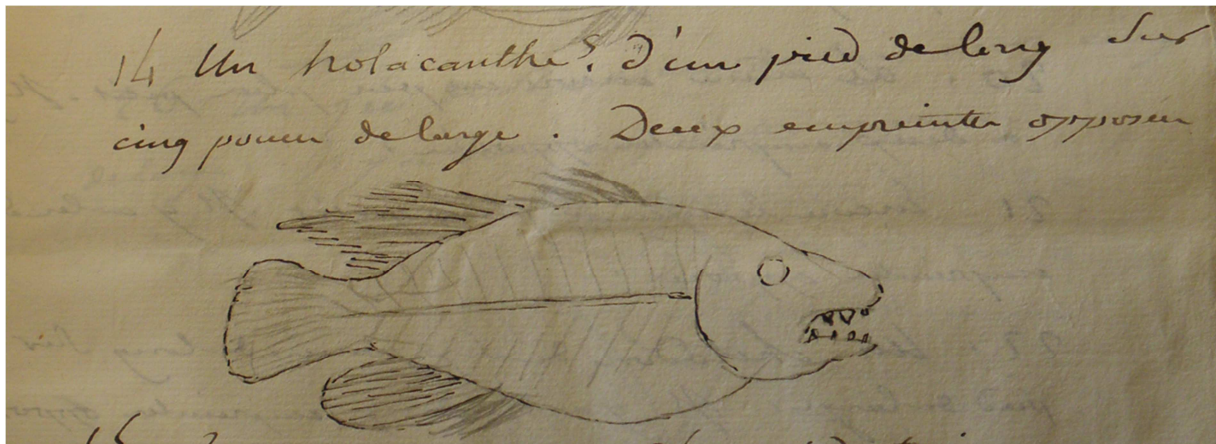 14 Un holacanthe? d'un pied de long sur
cinq pouces de large. Deux empreintes opposées